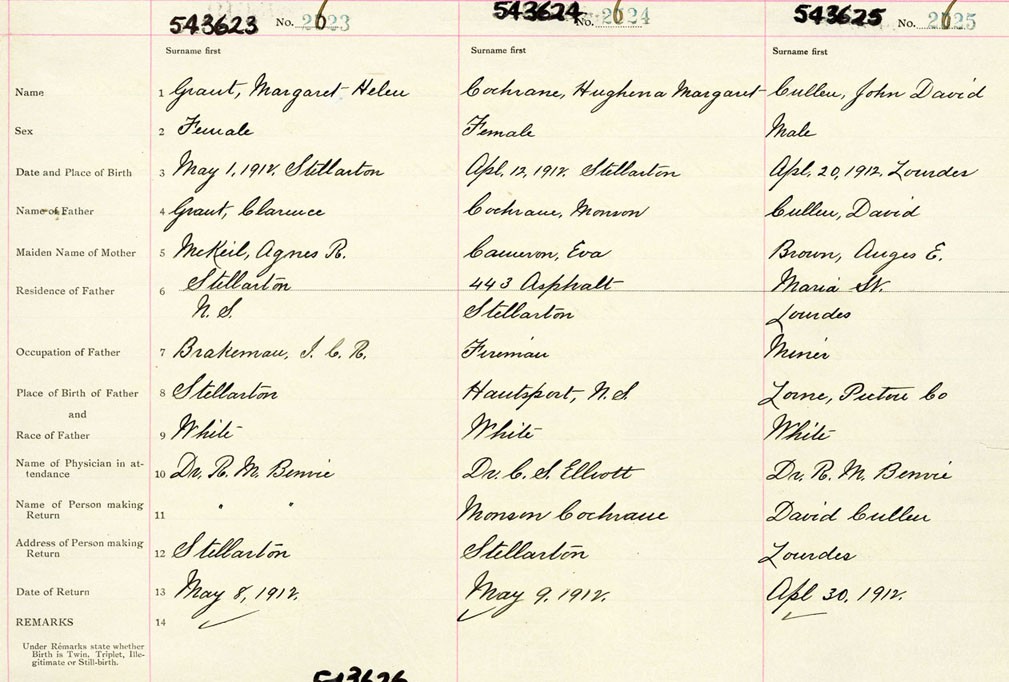 543623 No. 2623
543624 No. 2624
543625 No. 2625
Surname first Surname first Surname first
Name 1 Grant, Margaret Helen Cochrane, Hughena Margaret Cullen, John David
Sex 2 Female Female Male
Date and Place of Birth 3 May 1, 1912. Stellarton Apl. 12, 1912. Stellarton Apl. 20, 1912. Lourdes
Name of Father 4 Grant, Clarence Cochrane, Monson Cullen, David
Maiden Name of Mother 5 McKeil, Agnes R. Cameron, Eva Brown, Anges E.
Residence of Father 6 Stellarton 443 Asphalt Maria St.
N. S. Stellarton Lourdes
Occupation of Father 7 Brakeman, I. C. R. Fireman Miner
Place of Birth of Father 8 Stellarton Hantsport, N. S. Lorne, Pictou Co
and
Race of Father 9 White White White
Name of Physician in at-
tendance 10 Dr. R. M. Benvie Dr. C. S. Elliott Dr. R. M. Benvie
Name of Person making
Return 11 " " Monson Cochrane David Cullen
Address of Person making
Return 12 Stellarton Stellarton Lourdes
Date of Return 13 May 8, 1912. May 9, 1912. Apl 30, 1912.
REMARKS 14
Under Remarks state whether
Birth is Twin, Triplet, Ille-
gitimate or Still-birth.
543626